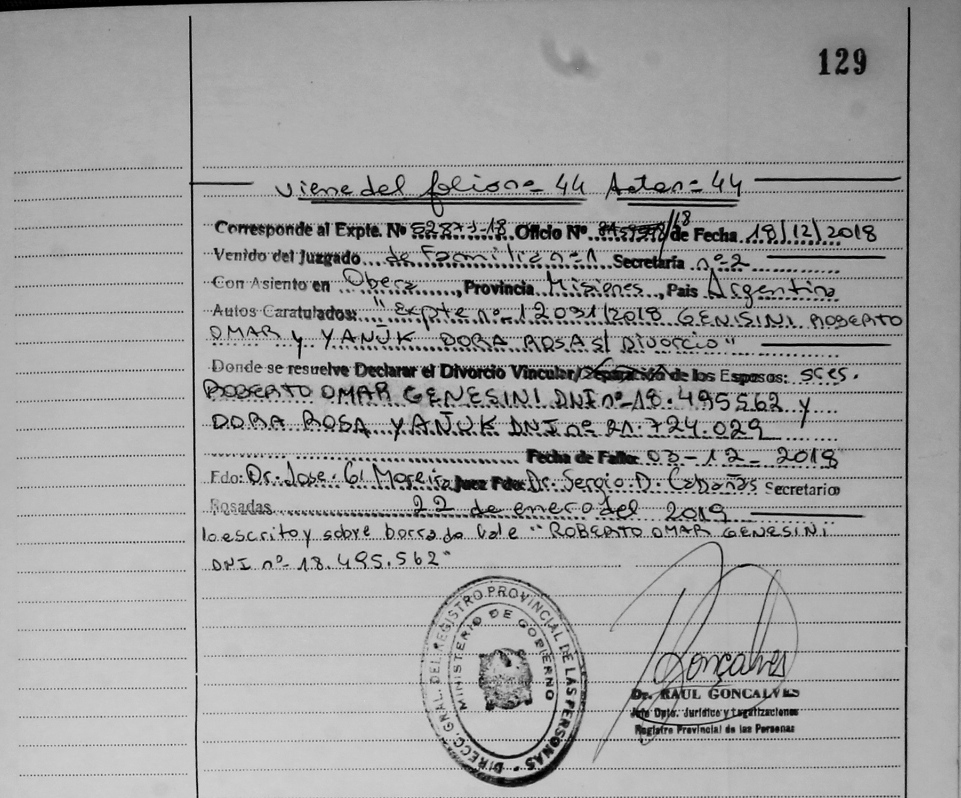 129
Viene del folio nº 44 Acta nº 44
Corresponde al Expte. Nº 52873-18 Oficio Nº /18 de Fecha 18/12/2018
Venido del Juzgado de Familia nº 1 Secretaría nº 2
Con Asiento en Oberá, Provincia Misiones, País Argentina
Autos Caratulados: "Expte nº 12031/2018 GENISINI ROBERTO
OMAR y YAÑUK DORA ROSA S/ Divorcio"
Donde se resuelve Declarar el Divorcio Vincular/Separación de los Esposos: sres.
ROBERTO OMAR GENESINI DNI nº 18.495.562 y
DORA ROSA YAÑUK DNI nº 21.724.029
Fecha de Fallo: 03-12-2018
Fdo: Dr. Jose G Moreira Juez Fdo: Dr. Sergio D. Cabañas Secretario
Posadas 22 de enero del 2019
lo escrito y sobre borrado vale "ROBERTO OMAR GENESINI
DNI nº 18.495.562"
DIRECC. GRAL. DEL REGISTRO PROVINCIAL DE LAS PERSONAS
MINISTERIO DE GOBIERNO
Goncalves
Dr. RAUL GONCALVES
Jefe Dpto. Jurídico y Legalizaciones
Registro Provincial de las Personas